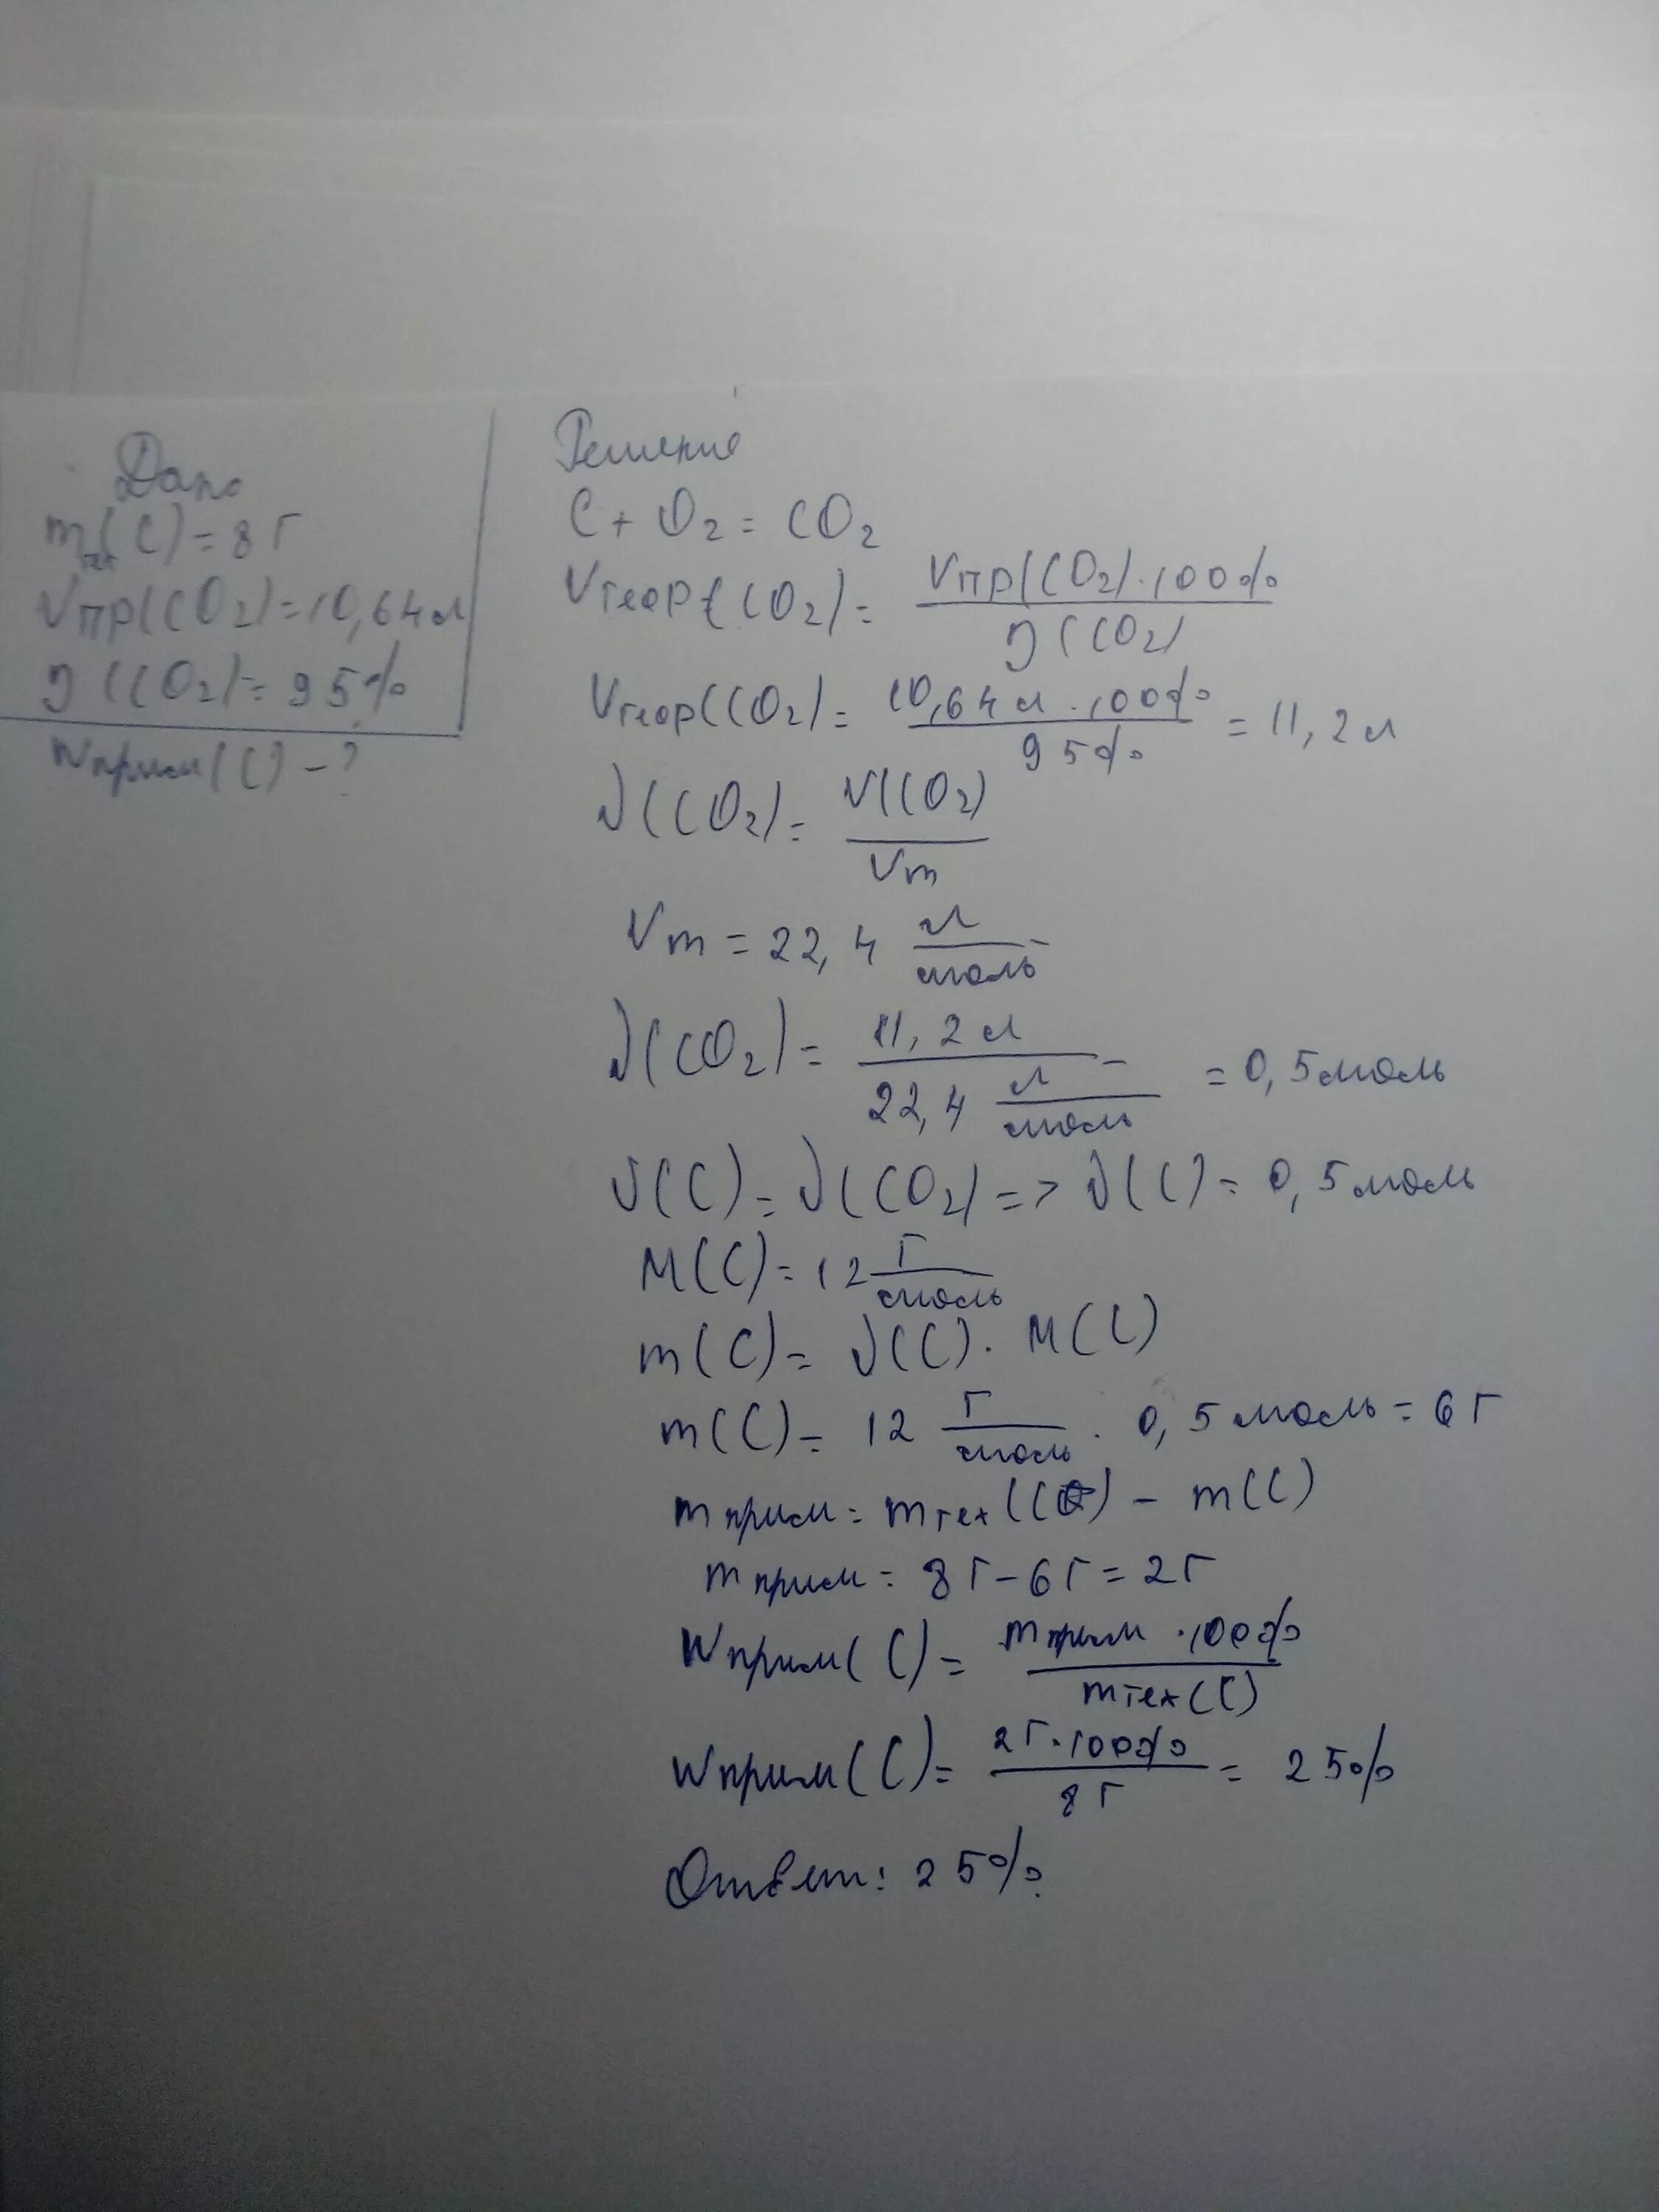 Дано
mтех(C) = 8 г
Vпр(CO2) = 10,64 л
η(CO2) = 95%
Wприм(C) - ?
Решение
C + O2 = CO2
Vтеор(CO2) = Vпр(CO2)·100% / η(CO2)
Vтеор(CO2) = 10,64 л · 100% / 95% = 11,2 л
ν(CO2) = V(CO2) / Vm
Vm = 22,4 л/моль
ν(CO2) = 11,2 л / 22,4 л/моль = 0,5 моль
ν(C) = ν(CO2) => ν(C) = 0,5 моль
M(C) = 12 г/моль
m(C) = ν(C) · M(C)
m(C) = 12 г/моль · 0,5 моль = 6 г
mприм = mтех(C) - m(C)
mприм = 8 г - 6 г = 2 г
Wприм(C) = mприм · 100% / mтех(C)
Wприм(C) = 2 г · 100% / 8 г = 25%
Ответ: 25%.